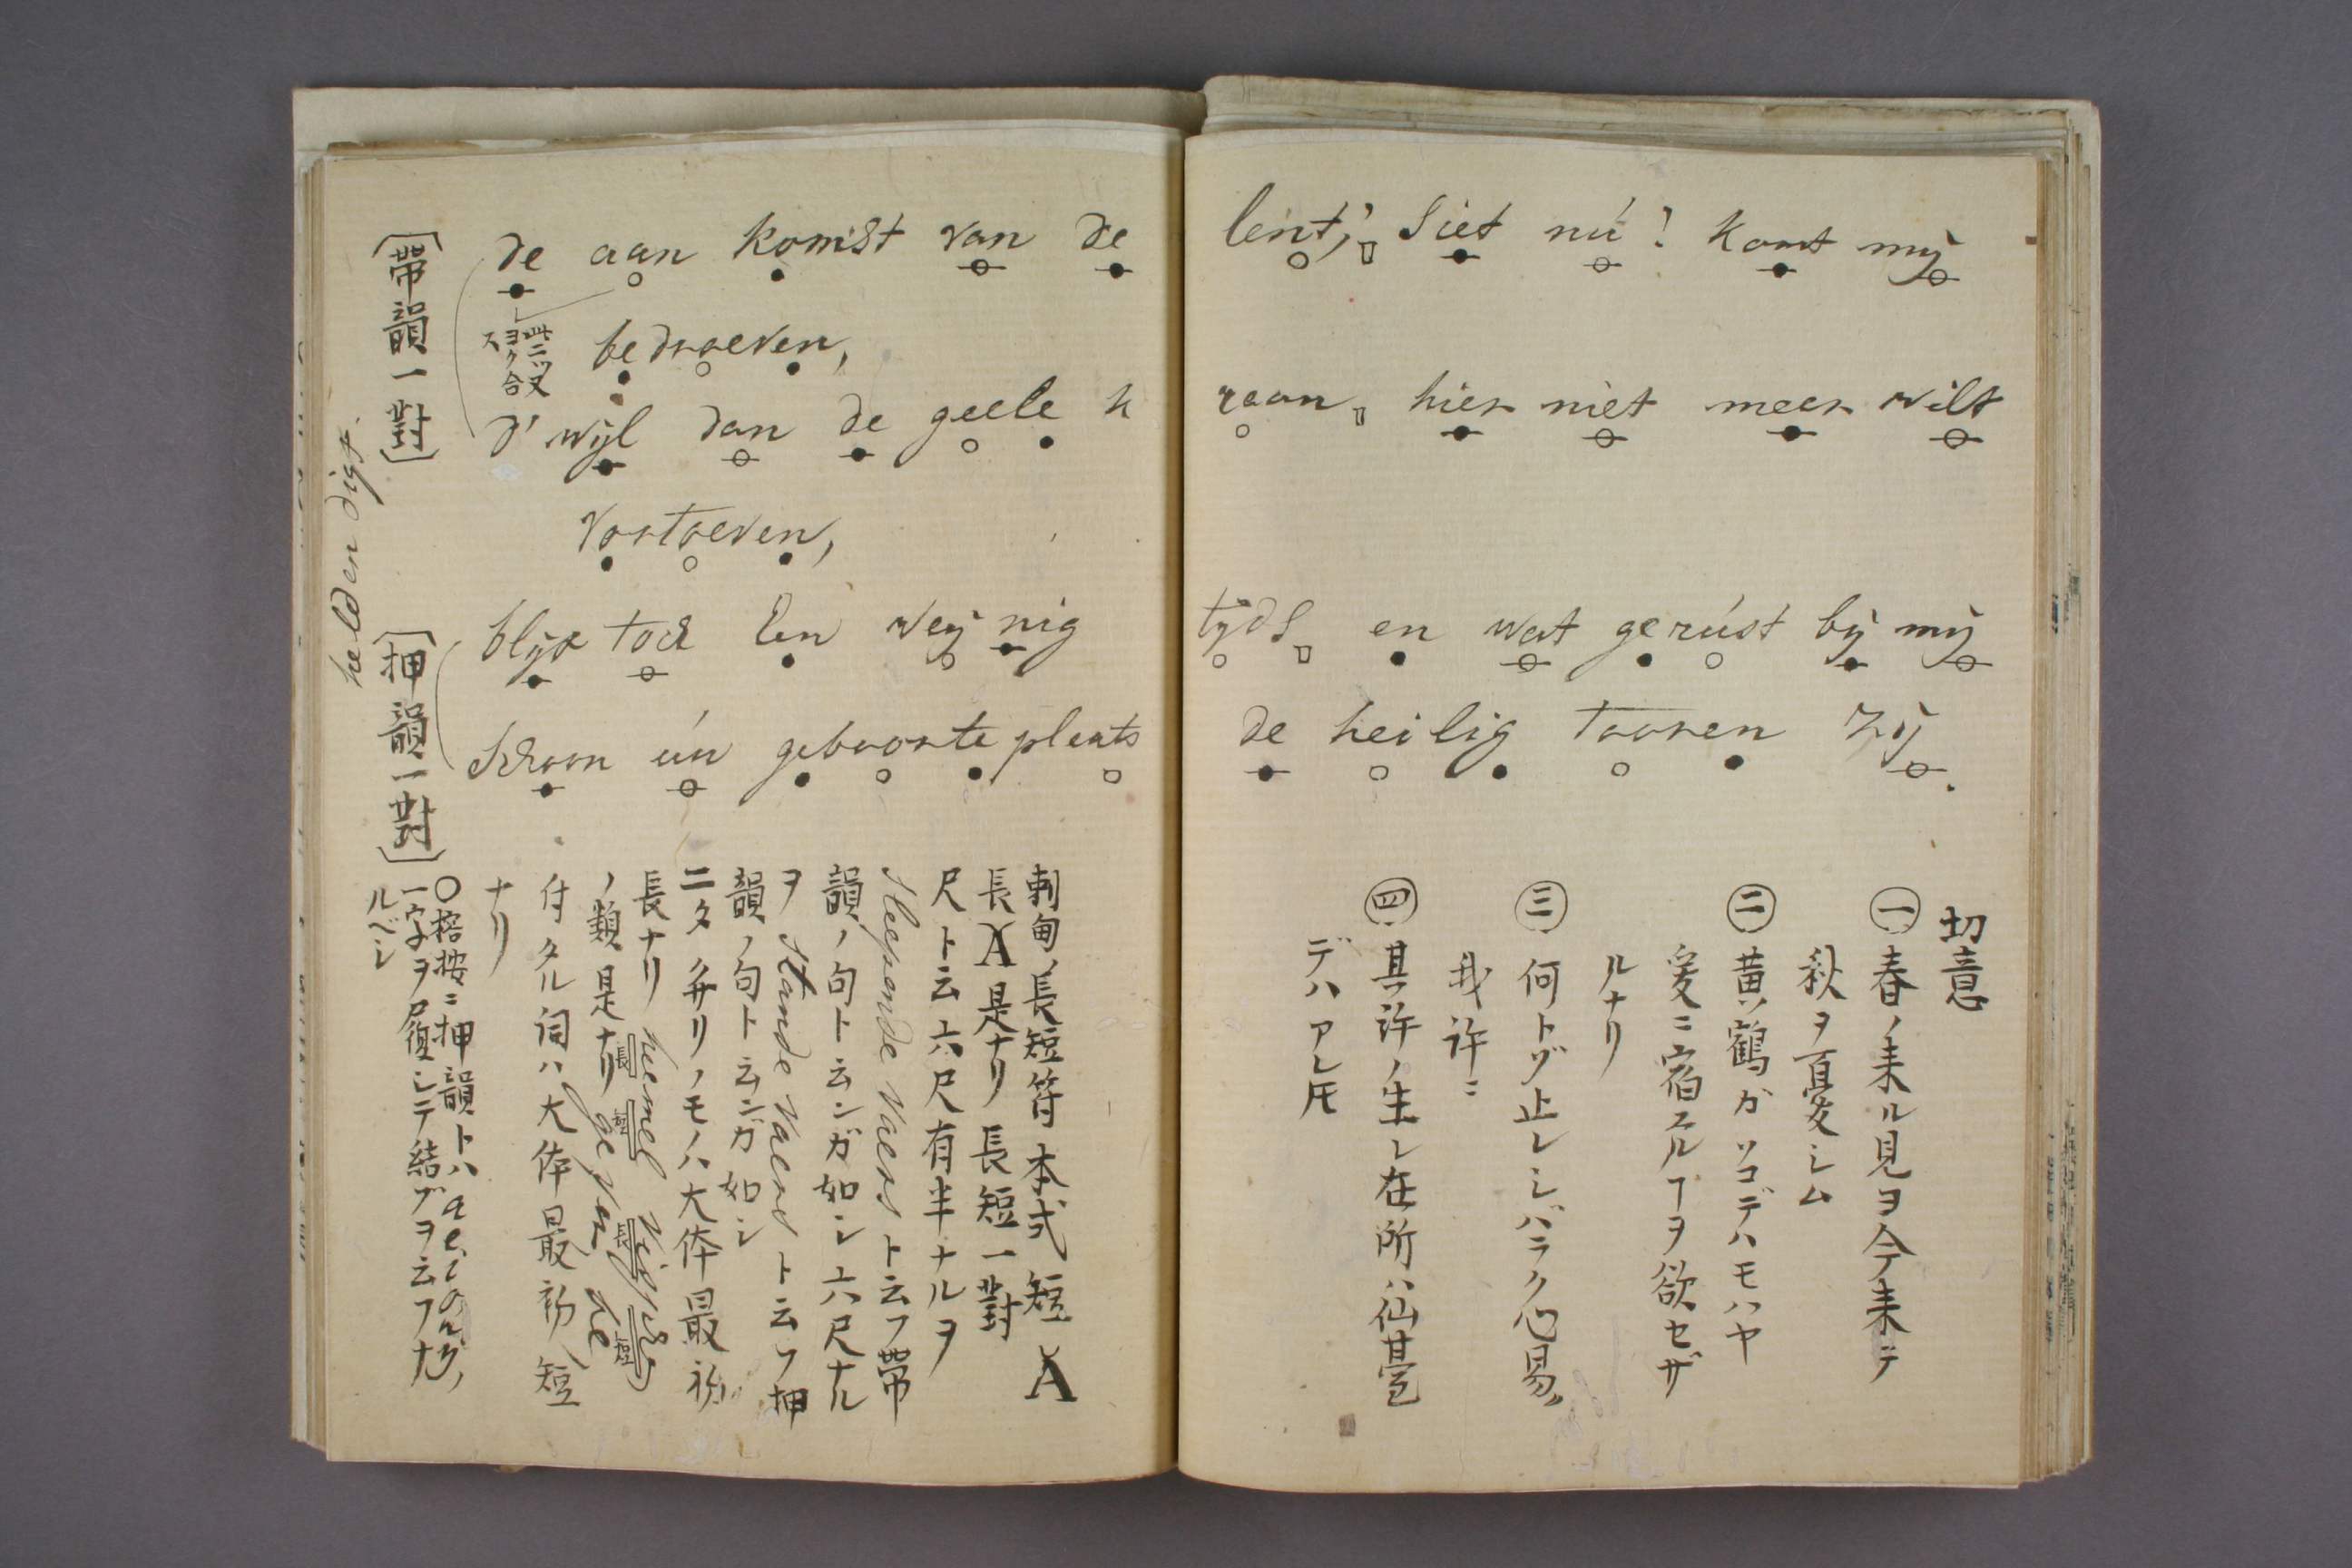 de aan komst van de lent; Siet nú! komt mÿ
bedroeven,
d' wÿl dan de geele k raan hier niet meer wilt
vertoeven,
blÿft toch een weÿnig tÿds en wat gerúst bÿ mÿ
Schoon úw geboorte pleats de heilig tooren zÿ.
此ニツ又
ヨク合
ス
〔帶韻一對〕
〔押韻一對〕
helden digt.
切意
㊀春ノ来ル見ヨ今来テ
秋ヲ憂シム
㊁黄ツ鶴ガソコデハモハヤ
爰ニ宿スルヿヲ欲セザ
ルナリ
㊂何トゾ止レシバラク心易ク
我許ニ
㊃其許ノ生レ在所ハ仙臺
デハアレ𪜈
剌甸ノ長短符本式短
長 是ナリ長短一對
尺ト云六尺有半ナルヲ
Slepende Vaers ト云フ帶
韻ノ句ト云ンガ如シ六尺ナル
ヲ Stande Vaers ト云フ押
韻ノ句ト云ンガ如シ
二タクサリノモノハ大体最初
長ナリ hemel
長 短 長 短
ノ類是ナリ ge
付タル詞ハ大体最初短
ナリ
〇 按ニ押韻トハ a e i o u
一字ヲ履シテ結ブヲ云フナ
ルベシ